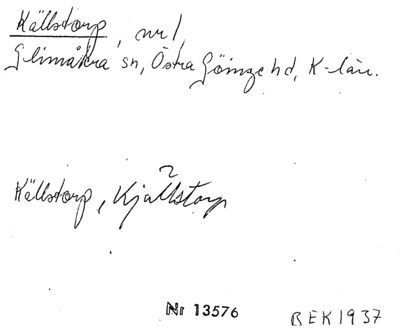 Källstorp, nr 1,
Glimåkra sn, Östra Göinge hd, K-län.
Källstorp, Kjällstorp
Nr 13576
BEK 1937